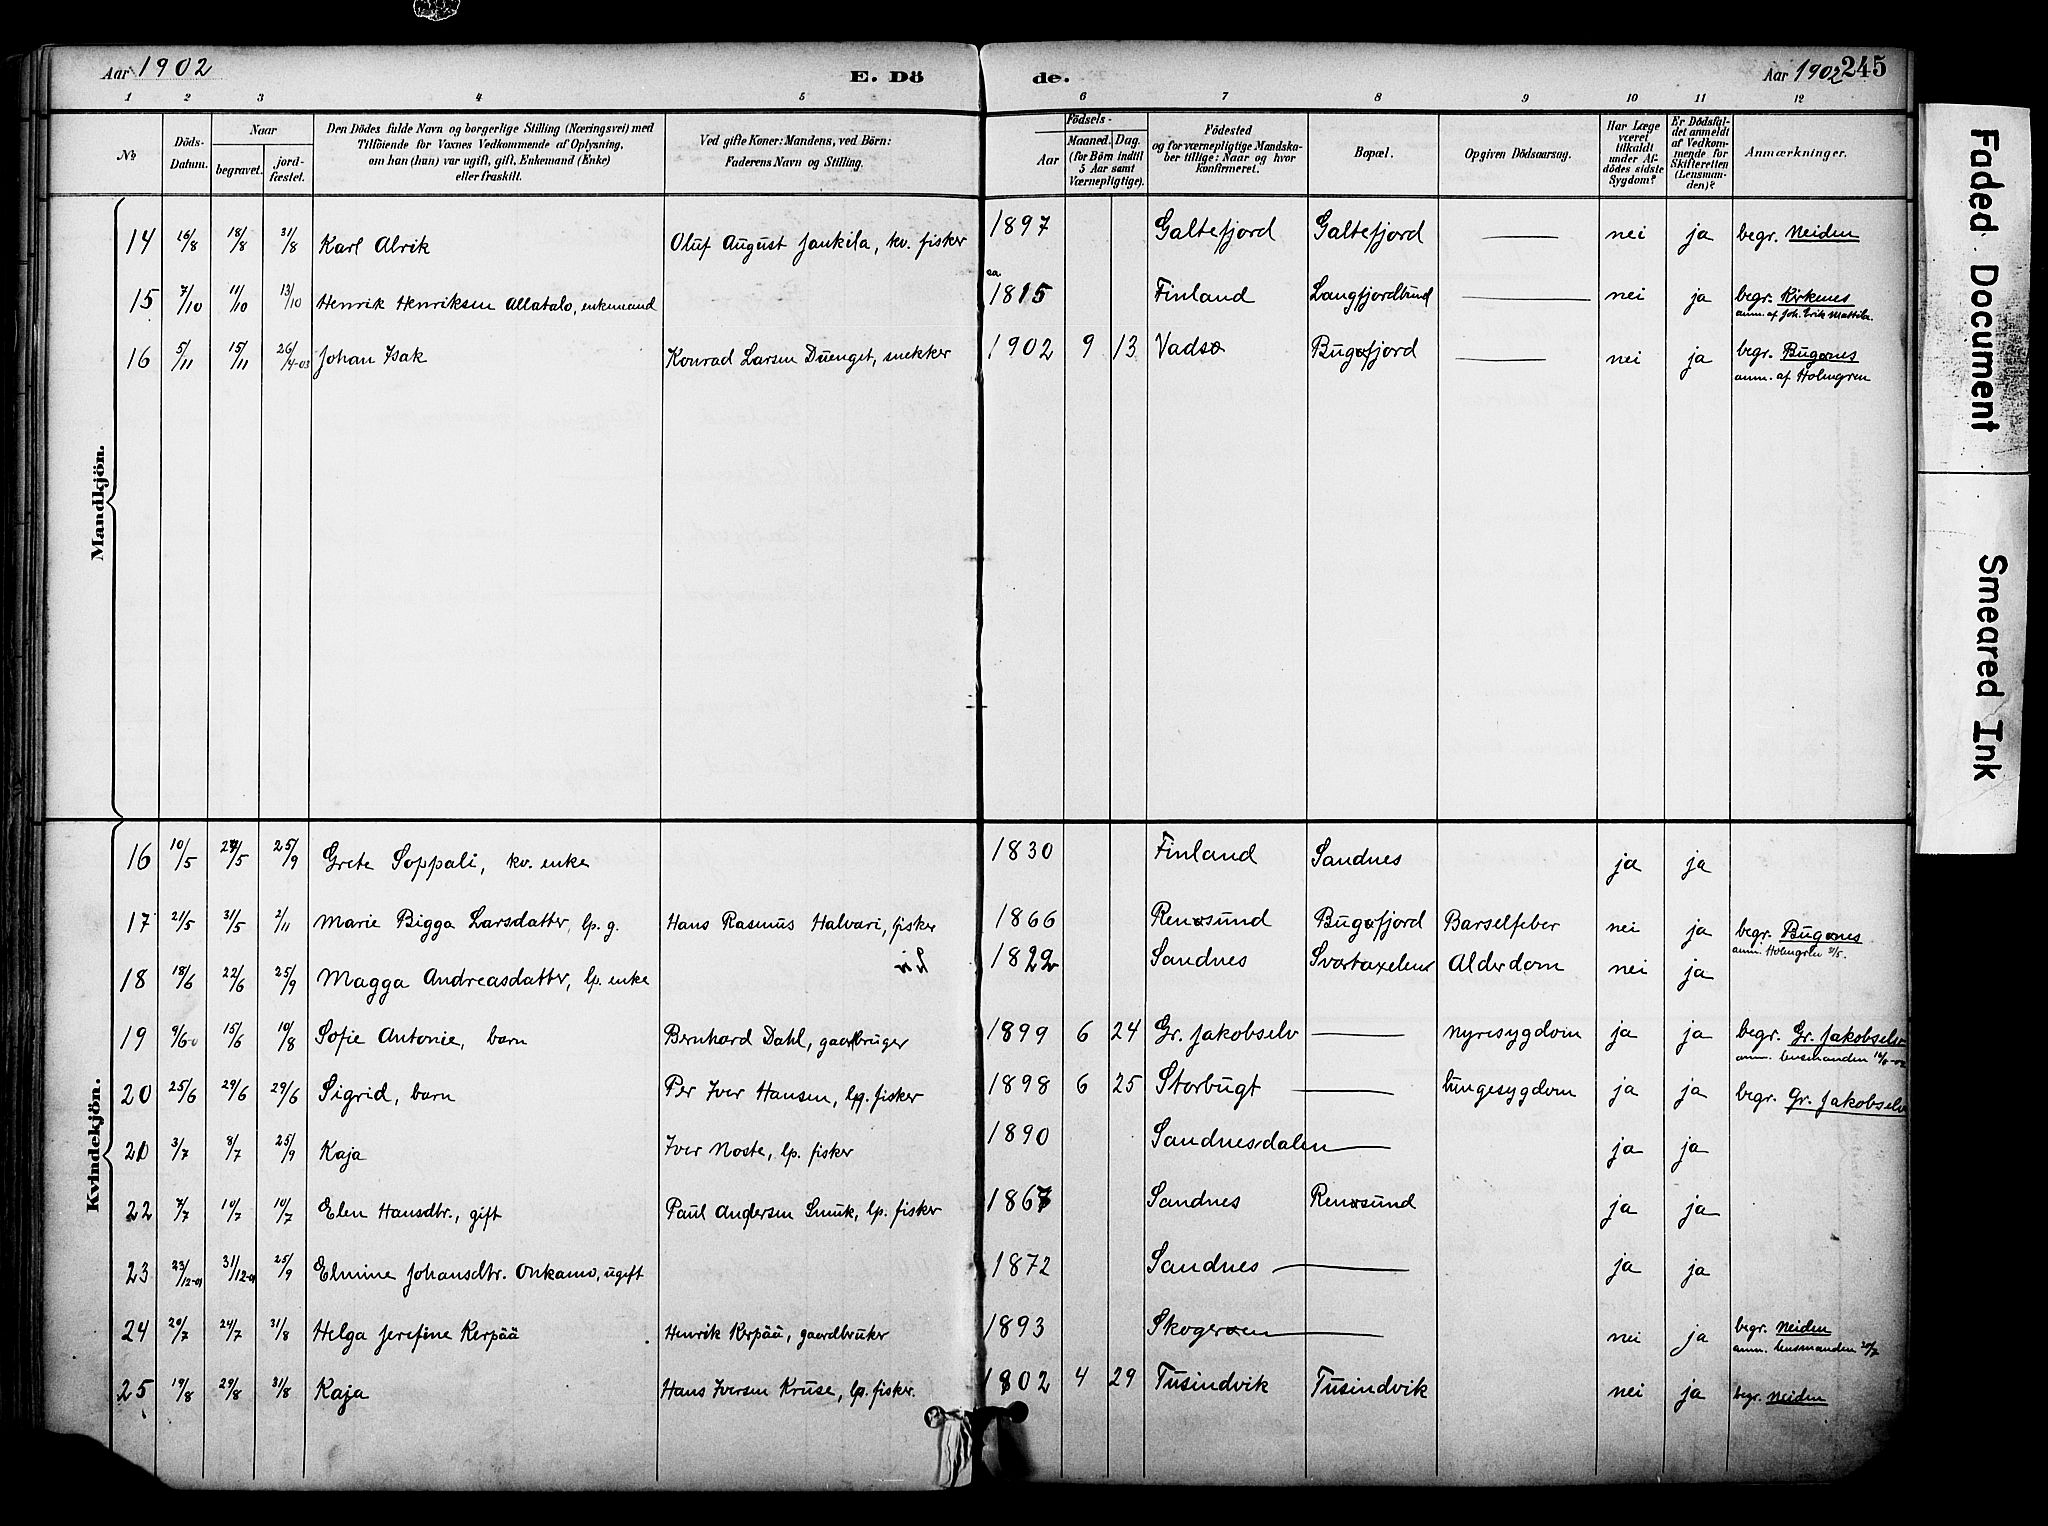 Aar 1902 E. Döde. Aar 1902 245
1 2 3 4 5 6 7 8 9 10 11 12
No. Döds-Datum. Naar begravet. jordfæstet. Den Dödes fulde Navn og borgerlige Stilling (Næringsvei) med Tilföiende for Voxnes Vedkommende af Oplysning, om han (hun) var ugift, gift, Enkemand (Enke) eller fraskilt. Ved gifte Koner: Mandens, ved Börn: Faderens Navn og Stilling. Födsels- Aar Maaned. Dag. (for Börn indtil 5 Aar samt Værnepligtige). Födested og for værnepligtige Mandskaber tillige: Naar og hvor konfirmeret. Bopæl. Opgiven Dödsaarsag. Har Læge været tilkaldt under Afdödes sidste Sygdom? Er Dödsfaldet anmeldt af Vedkommende for Skifteretten (Lensmanden)? Anmærkninger.
Mandkjön.
14 16/8 18/8 31/8 Karl Alrik Oluf August Jankila, kv. fisker 1897 Galtefjord Galtefjord — nei ja begr. Neiden
15 7/10 11/10 13/10 Henrik Henriksen Allatalo, enkemand ca. 1815 Finland Langfjordbund — nei ja begr. Kirkenes
anm. af Joh. Erik Mattila.
16 5/11 15/11 26/4-03 Johan Isak Konrad Larsen Duenget, snekker 1902 9 13 Vadsø Bugøfjord — nei ja begr. Bugønes
anm. af Holmgren
Kvindekjön.
16 10/5 24/5 25/9 Grete Soppali, kv. enke 1830 Finland Sandnes ja ja
17 21/5 31/5 2/11 Marie Bigga Larsdatter, lp. g. Hans Rasmus Halvari, fisker 1866 Renøsund Bugøfjord Barselfeber nei ja begr. Bugønes
anm. Holmgren 31/5.
18 18/6 22/6 25/9 Magga Andreasdatter, lp. enke 1822 Sandnes Svartaxelen Alderdom nei ja
19 9/6 15/6 10/8 Sofie Antonie, barn Bernhard Dahl, gaardbruger 1899 6 24 Gr. Jakobselv — nyresygdom ja ja begr. Gr. Jakobselv
anm. lensmanden
20 25/6 29/6 29/6 Sigrid, barn Per Iver Hansen, lp. fisker 1898 6 25 Storbugt — lungesygdom ja ja begr. Gr. Jakobselv
21 3/7 8/7 25/9 Kaja Iver Noste, lp. fisker 1890 Sandnesdalen — ja ja
22 7/7 10/7 10/7 Elen Hansdtr., gift Paul Andersen Smuk, lp. fisker 1867 Sandnes Renøsund ja ja
23 23/12-01 31/12-01 25/9 Elmine Johansdtr. Onkamo, ugift 1872 Sandnes — ja ja
24 20/7 24/7 31/8 Helga Jerefine Kerpää Henrik Kerpää, gaardbruker 1893 Skogerøen — nei ja begr. Neiden
anm. lensmanden 20/7
25 19/8 29/8 31/8 Kaja Hans Iversen Kruse, lp. fisker. 1902 4 29 Tusindvik Tusindvik nei ja begr. Neiden
Faded Document
Smeared Ink